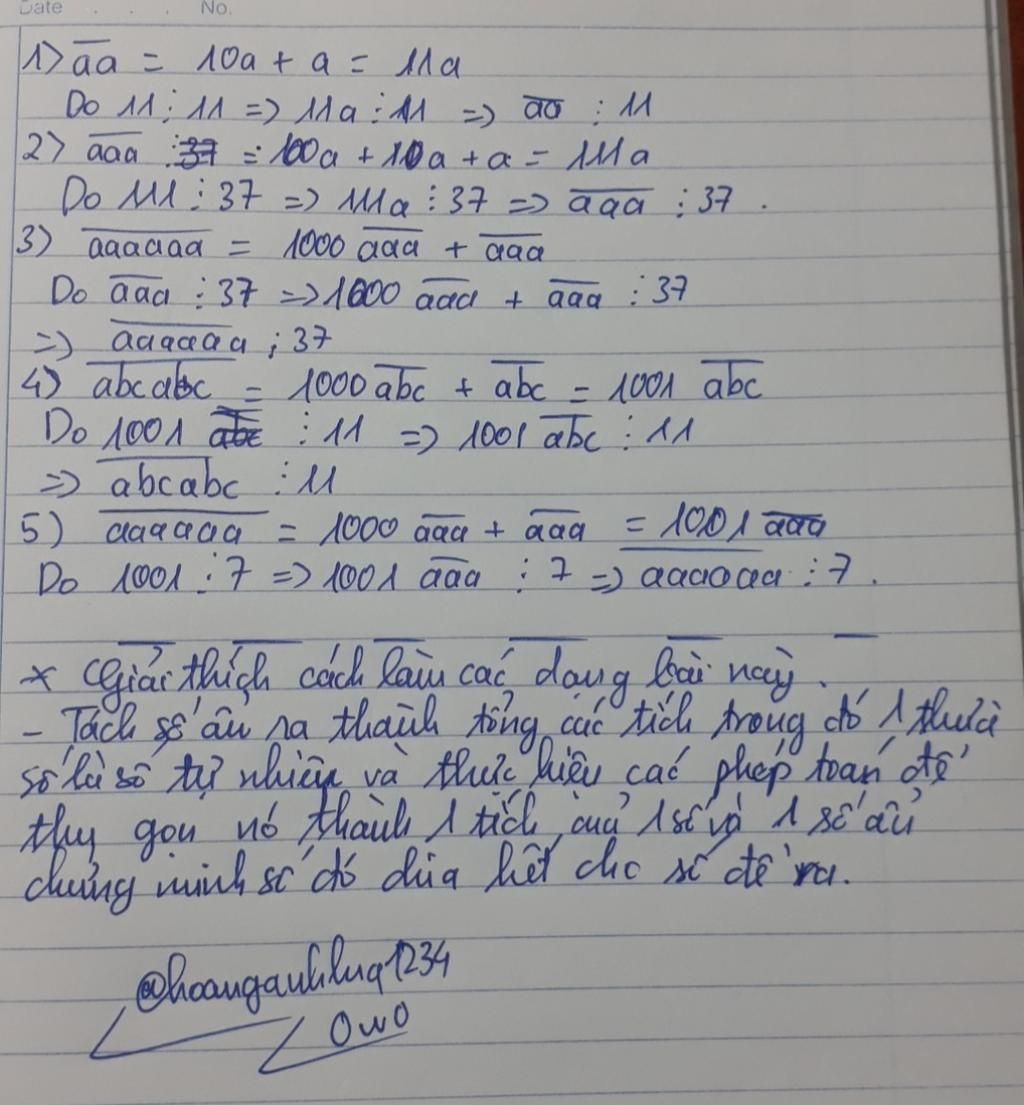 Date . . . No.
1) a̅a̅ = 10a + a = 11a
Do 11 ⋮ 11 => 11a ⋮ 11 => a̅a̅ ⋮ 11
2) a̅a̅a̅ = 100a + 10a + a = 111a
Do 111 ⋮ 37 => 111a ⋮ 37 => a̅a̅a̅ ⋮ 37 .
3) a̅a̅a̅a̅a̅a̅ = 1000 a̅a̅a̅ + a̅a̅a̅
Do a̅a̅a̅ ⋮ 37 => 1000 a̅a̅a̅ + a̅a̅a̅ ⋮ 37
=> a̅a̅a̅a̅a̅a̅ ⋮ 37
4) a̅b̅c̅a̅b̅c̅ = 1000 a̅b̅c̅ + a̅b̅c̅ = 1001 a̅b̅c̅
Do 1001 ⋮ 11 => 1001 a̅b̅c̅ ⋮ 11
=> a̅b̅c̅a̅b̅c̅ ⋮ 11
5) a̅a̅a̅a̅a̅a̅ = 1000 a̅a̅a̅ + a̅a̅a̅ = 1001 a̅a̅a̅
Do 1001 ⋮ 7 => 1001 a̅a̅a̅ ⋮ 7 => a̅a̅a̅a̅a̅a̅ ⋮ 7 .
* Giải thích cách làm các dạng bài này .
- Tách số ẩn ra thành tổng các tích trong đó 1 thừa
số là số tự nhiên và thực hiện các phép toán để
thu gọn nó thành 1 tích của 1 số và 1 số ẩn
chứng minh số đó chia hết cho số đề ra.
@hoanganhluq1234
OwO